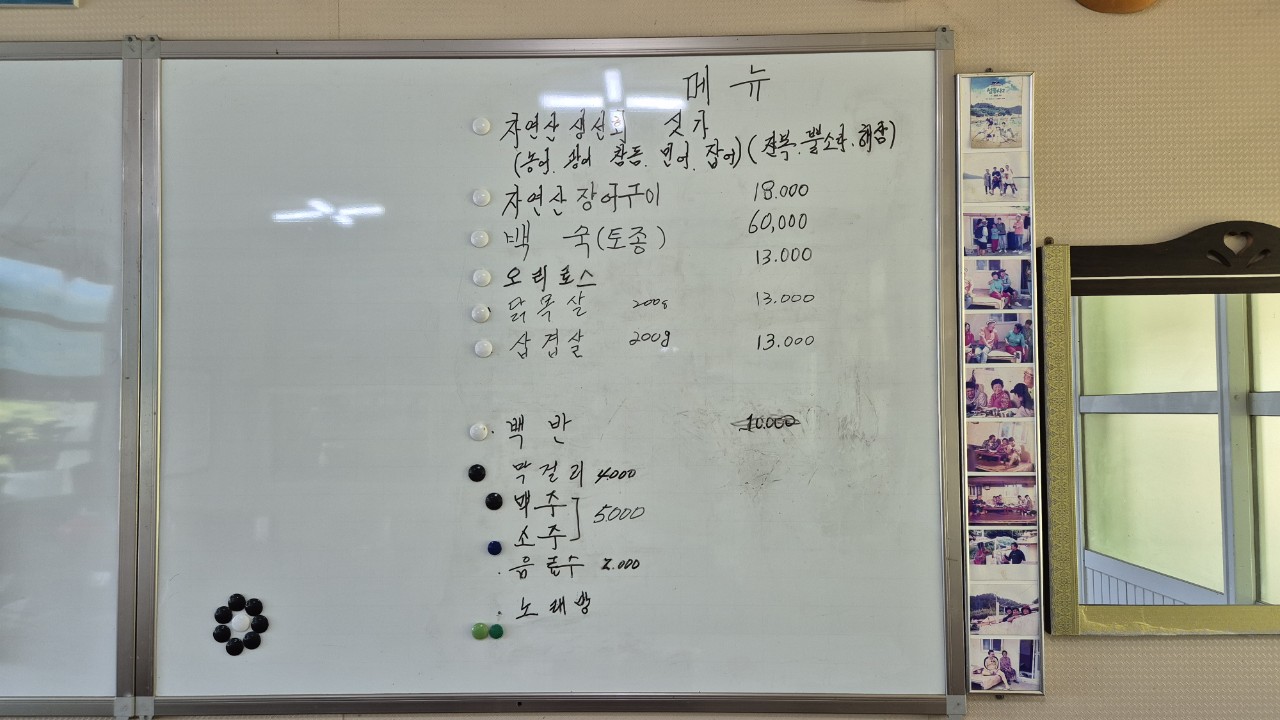 메 뉴
자연산 생선회 싯가
(농어. 광어 참돔. 민어. 잡어) (전복. 뿔소라. 해삼)
자연산 장어구이 18.000
백 숙(토종) 60,000
오리로스 13.000
닭목살 200g 13.000
삼겹살 200g 13.000
백 반 10.000
막걸리 4.000
맥주
소주 5.000
음료수 2.000
노래방